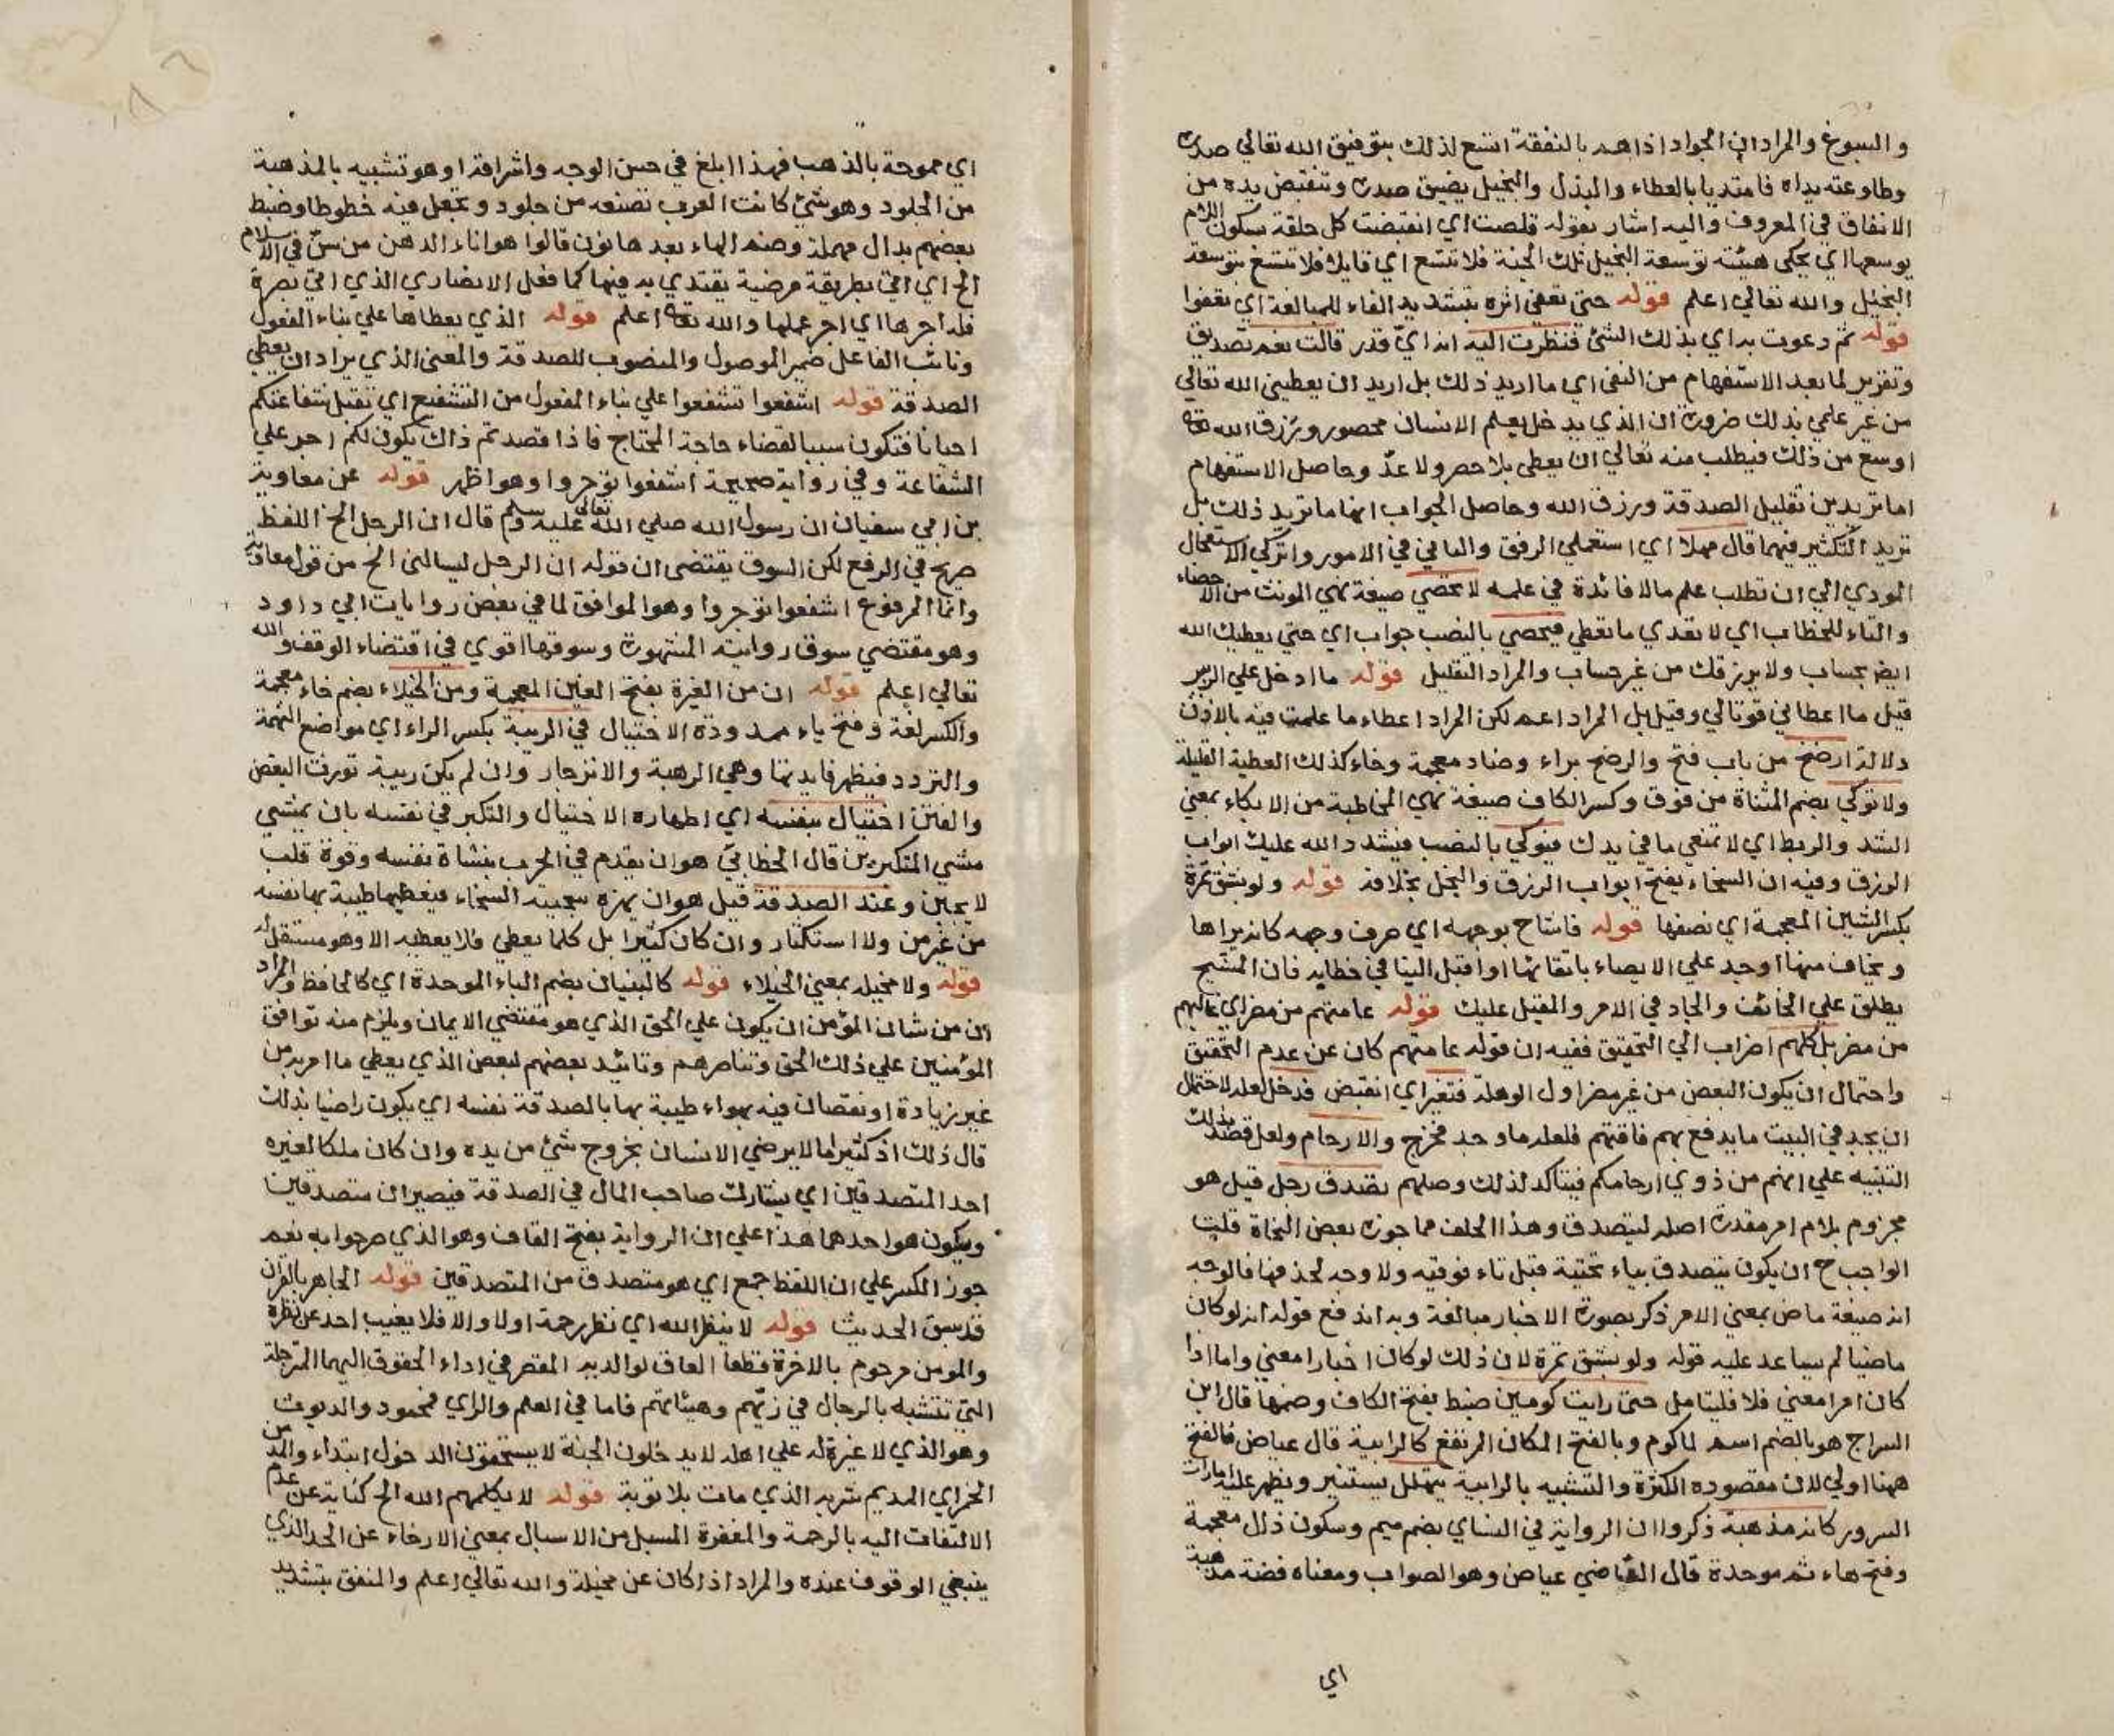 والسبوغ والمراد ان الجواد اذا هم بالنفقة اتسع لذلك بتوفيق الله تعالي صدره
وطاوعته يداه فامتديا بالعطاء والبذل والبخيل يضيق صدره وتنقبض يده من
الانفاق في المعروف واليه اشار بقوله قلصت اي انقبضت كل حلقة بسكون اللام
يوسعها اي يحكي هيئته توسعة البخيل تلك الجنة فلا تتسع اي قايلا فلا تتسع بتوسعة
البخيل والله تعالي اعلم قوله حتي تعفي اثره بتشديد الفاء للمبالغة اي تعفوا
قوله ثم دعوت به اي بذلك الشئ فنظرت اليه انه اي قدر قالت نعم تصديق
وتقرير لما بعد الاستفهام من النفي اي ما اريد ذلك بل اريد ان يعطيني الله تعالي
من غير علمي بذلك ضرورة ان الذي يدخل بعلم الانسان محصور ورزق الله تعه
اوسع من ذلك فيطلب منه تعالي ان يعطي بلا حصر ولا عدّ وحاصل الاستفهام
اما تريدين تقليل الصدقة ورزق الله وحاصل الجواب انها ما تريد ذلك بل
تريد التكثير فيهما قال مهلا اي استعملي الرفق والتاني في الامور واتركي الاستعجال
المودي الي ان تطلب علم ما لا فائدة في علمه لا تحصي صيغة نهي المونث من الاحصاء
والتاء للخطاب اي لا تعدي ما تعطي فيحصي بالنصب جواب اي حتي يعطيك الله
ايضا بحساب ولا يرزقك من غير حساب والمراد التقليل قوله ما ادخل علي الزبير
قيل ما اعطاني قوتا لي وقيل بل المراد اعم لكن المراد اعطاء ما علمت فيه بالاذن
دلالة ارضخ من باب فتح والرضخ براء وضاد معجمة وخاء كذلك العطية القليلة
ولا توكي بضم المثناة من فوق وكسر الكاف صيغة نهي المخاطبة من الايكاء بمعني
الشد والربط اي لا تمنعي ما في يدك فيوكي بالنصب فيشدد الله عليك ابواب
الرزق وفيه ان السخاء يفتح ابواب الرزق والبخل بخلافه قوله ولو بشق تمرة
بكسر الشين المعجمة اي نصفها قوله فاشاح بوجهه اي صرف وجهه كانه يراها
ويخاف منها او جد علي الايصاء باتقائها او اقبل الينا في خطابه فان المشيح
يطلق علي الخائف والجاد في الامر والمقبل عليك قوله عامتهم من مضر اي غالبهم
من مضر بل كلهم اضراب الي التحقيق ففيه ان قوله عامتهم كان عن عدم التحقيق
واحتمال ان يكون البعض من غير مضر اول الوهلة فتغير اي انقبض فدخل لعله لاحتمال
ان يجد في البيت ما يدفع به فاقتهم فلعله ما وجد فخرج والارحام ولعل قصده بذلك
التنبيه علي انهم من ذوي ارحامكم فيتاكد لذلك وصلهم تصدق رجل قيل هو
مجزوم بلام امر مقدرة اصله ليتصدق وهذا الحلف مما جوزه بعض النحاة قلت
الواجب ح ان يكون يتصدق بياء تحتية قبل تاء فوقيه ولا وجه لحذفها فالوجه
انه صيغة ماض بمعني الامر ذكر بصورة الاخبار مبالغة وبه اندفع قوله انه لو كان
ماضيا لم يساعد عليه قوله ولو بشق تمرة لان ذلك لو كان اخبارا معني واما اذا
كان امرا معني فلا فليتامل حتي رايت كومين ضبط بفتح الكاف وضمها قال ابن
السراج هو بالضم اسم لما كوم وبالفتح المكان المرتفع كالرابية قال عياض فالفتح
ههنا اولي لان مقصوده الكثرة والتشبيه بالرابية يتهلل يستنير ويظهر عليه امارات
السرور كانه مذهبة ذكروا ان الرواية في النساي بضم ميم وسكون ذال معجمة
وفتح هاء ثم موحدة قال القاضي عياض وهو الصواب ومعناه فضة مذهبة
اي
اي مموحة بالذهب فهذا ابلغ في حسن الوجه واشراقه او هو تشبيه بالمذهبة
من الجلود وهو شئ كانت العرب تصنعه من جلود وتجعل فيه خطوطا وضبط
بعضهم بدال مهملة وضم الهاء بعدها نون قالوا هو اناء الدهن من سنّ في الاسلام
الخ اي اتي بطريقة مرضية يقتدي به فيها كما فعل الانصاري الذي اتي بصرة
فله اجرها اي اجر عملها والله تعه اعلم قوله الذي يعطاها علي بناء المفعول
ونائب الفاعل ضمير الموصول والمنصوب للصدقة والمعني الذي يراد ان يعطي
الصدقة قوله اشفعوا تشفعوا علي بناء المفعول من التشفيع اي تقبل شفاعتكم
احيانا فتكون سببا لقضاء حاجة المحتاج فاذا قصد تم ذاك يكون لكم اجر علي
الشفاعة وفي رواية صحيحة اشفعوا توجروا وهو اظهر قوله عن معاوية
بن ابي سفيان ان رسول الله صلي الله تعالي عليه وسلم قال ان الرجل الخ اللفظ
صريح في الرفع لكن السوق يقتضي ان قوله ان الرجل ليسالني الخ من قول معاوية
وانما المرفوع اشفعوا توجروا وهو الموافق لما في بعض روايات ابي داود
وهو مقتضي سوق رواية المشهورة وسوقها اقوي في اقتضاء الوقف والله
تعالي اعلم قوله ان من الغيرة بفتح الغين المعجمة ومن الخيلاء بضم خاء معجمة
والكسر لغة وفتح ياء ممدودة الاختيال في الريبة بكسر الراء اي مواضع التهمة
والتردد فيظهر فايدتها وهي الرهبة والانزجار وان لم يكن ريبة تورث البغض
والفتن اختيال بنفسه اي اظهاره الاختيال والتكبر في نفسه بان يمشي
مشي المتكبرين قال الخطابيّ هو ان يقدم في الحرب بنشاة نفسه وقوة قلب
لا يجبن وعند الصدقة قيل هو ان يهزه سجيته السخاء فيعطيها طيبة بها نفسه
من غير من ولا استكثار وان كان كثيرا بل كلما يعطي فلا يعطيه الا وهو مستقل له
قوله ولا مخيله بمعني الخيلاء قوله كالبنيان بضم الباء الموحدة اي كالحافظ والمراد
ان من شان المؤمن ان يكون علي الحق الذي هو مقتضي الايمان ويلزم منه توافق
المؤمنين علي ذلك الحق وتناصرهم وتائيد بعضهم لبعض الذي يعطي ما امر به من
غير زيادة او نقصان فيه بهواء طيبة بها بالصدقة نفسه اي يكون راضيا بذلك
قال ذلك اذ كثيرا ما لا يرضي الانسان بخروج شئ من يده وان كان ملكا لغيره
احد المتصدقين اي يشارك صاحب المال في الصدقة فيصيران متصدقين
ويكون هو احدهما هذا علي ان الرواية بفتح القاف وهو الذي صرحوا به نعم
جوز الكسر علي ان اللفظ جمع اي هو متصدق من المتصدقين قوله الجاهر بالقران
قد سبق الحديث قوله لا ينظر الله اي نظر رحمة اولا والا فلا يغيب احد عن نظره
والمومن مرحوم بالاخرة قطعا العاق لوالديه المقصر في اداء الحقوق اليهما المترجلة
التي تتشبه بالرجال في زيّهم وهيئاتهم فاما في العلم والراي فمحمود والديوث
وهو الذي لا غيرة له علي اهله لا يدخلون الجنة لا يستحقون الدخول ابتداء والمدمن
الخمر اي المديم شربه الذي مات بلا توبة قوله لا يكلمهم الله الخ كناية عن عدم
الالتفات اليه بالرحمة والمغفرة المسبل من الاسبال بمعني الارخاء عن الحد الذي
ينبغي الوقوف عنده والمراد اذا كان عن مخيلة والله تعالي اعلم والمنفق بتشديد